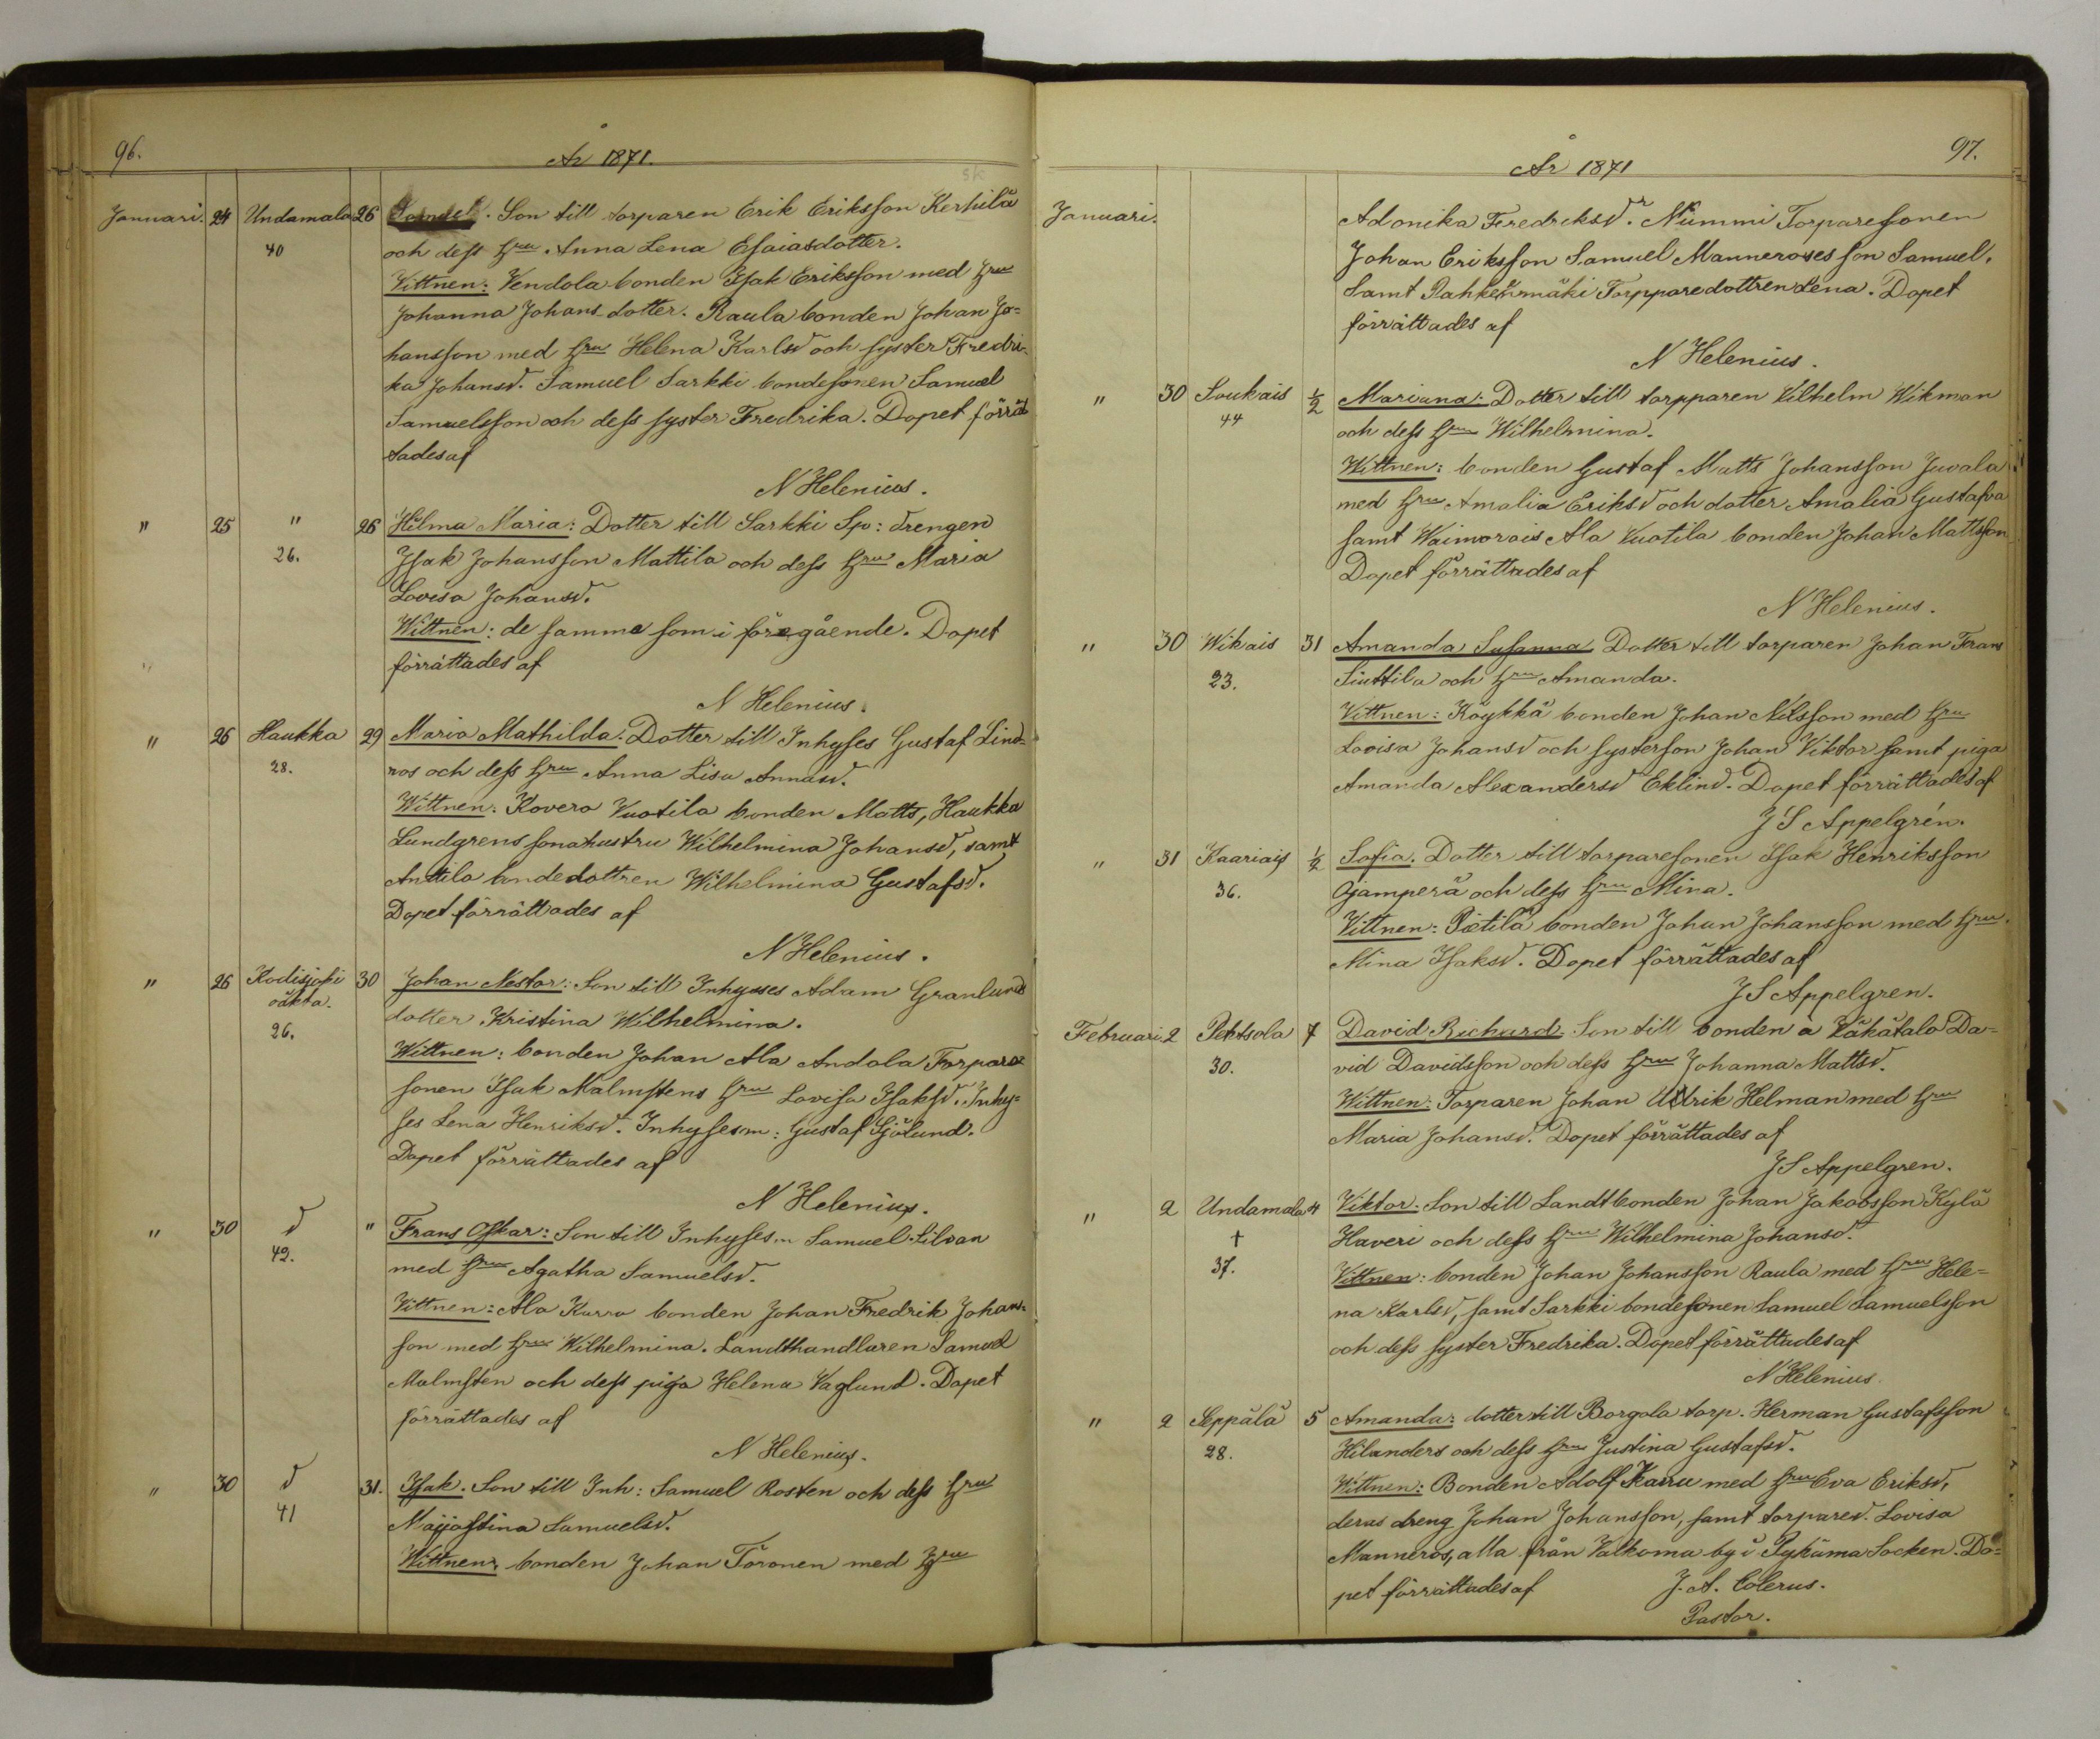 96.
År 1871.
Januari. 24 Undamala 26 Samuel. Son till torparen Erik Eriksson Kerhilä
40 och dess hru Anna Lena Esaiasdotter.
Vittnen: Vendola bonden Isak Eriksson med hru
Johanna Johans dotter. Raula bonden Johan Jo=
hansson med hru Helena Karlsd och syster Fredri-
ka Johansd. Samuel Sarkki bondesonen Samuel
Samuelsson och dess syster Fredrika. Dopet förrät
tades af
N Helenius.
" 25 " 26 Hilma Maria: Dotter till Sarkki Sp: drengen
26. Isak Johansson Mattila och dess hru Maria
Lovisa Johansd.
Wittnen: de samma som i föregående. Dopet
förrättades af
N Helenius.
" 26 Haukka 29 Maria Mathilda. Dotter till Inhyses Gustaf Lind=
28. ros och dess hru Anna Lisa Annasd.
Wittnen. Kovero Vuotila bonden Matts, Haukka
Lundgrens sonahustru Wilhelmina Johansd, samt
Anttila bondedottren Wilhelmina Gustafsd.
Dopet förrättades af
N Helenius.
" 26 Kodisjoki 30 Johan Nestor: Son till Inhyses Adam Granlunds
oäkta.
26. dotter Kristina Wilhelmina.
Wittnen: bonden Johan Ala Andola Torpare=
sonen Isak Malmstens hru Lovisa Isaksd. Inhy=
ses Lena Henriksd. Inhysesm: Gustaf Sjölund.
Dopet förrättades af
N Helenius.
" 30 d " Frans Oskar: Son till Inhyses m Samuel Silvan
49. med hru Agatha Samuelsd.
Vittnen: Ala Karro bonden Johan Fredrik Johans=
son med hru Wilhelmina. Landthandlaren Samuel
Malmsten och dess piga Helena Vaglund. Dopet
förrättades af
N Helenius.
" 30 d 31. Isak. Son till Inh: Samuel Rosten och dess hru
41 Majjastina Samuelsd.
Wittnen. bonden Johan Toronen med hru
97.
År 1871
Januari. Adonika Fredriksdr. Nummi Torparesonen
Johan Eriksson Samuel Manneroses son Samuel,
Samt Pahkenmäki Torpparedottren Lena. Dopet
förrättades af
N Helenius.
" 30 Soukais ½ Mariana: Dotter till torpparen Vilhelm Wikman
44 och dess hru Wilhelmina.
Wittnen: bonden Gustaf Matts Johansson Juvala
med hru Amalia Eriksd och dotter Amalia Gustafva
samt Waimorais Ala Vuotila bonden Johan Mattsson
Dopet förrättades af
N Helenius.
" 30 Wikais 31 Amanda Susanna. Dotter till torparen Johan Frans
23. Siuttila och hru Amanda.
Vittnen: Köykkä bonden Johan Nilsson med hru
Lovisa Johansd och systerson Johan Viktor samt piga
Amanda Alexandersd Eklind. Dopet förrättades af
J S Appelgrén.
" 31 Kaariais ½ Sofia. Dotter till torparesonen Isak Henriksson
36. Ojamperä och dess hru Mina.
Vittnen: Pietilä bonden Johan Johansson med hru.
Mina Isaksd. Dopet förrättades af
J S Appelgren.
Februari 2 Pehtsola 7 David Richard: Son till bonden å Väkätalo Da=
30. vid Davidsson och dess hru Johanna Mattsd.
Wittnen: Torparen Johan Ulrik Helman med hru
Maria Johansd. Dopet förrättades af
J S Appelgren.
" 2 Undamala 4 Viktor. Son till Landtbonden Johan Jakobsson Kylä
+ Haveri och dess hru Wilhelmina Johansd.
37. Vittnen: bonden Johan Johansson Raula med hru Hele=
na Karlsd, samt Sarkki bondesonen Samuel Samuelsson
och dess syster Fredrika. Dopet förrättades af
N Helenius.
" 2 Seppälä 5 Amanda: dotter till Borgola torp. Herman Gustafsson
28. Hilanders och dess hru Justina Gustafsd.
Wittnen: Bonden Adolf Karru med hru Eva Eriksd,
deras dreng Johan Johansson, samt torpared. Lovisa
Manneros, alla från Valkoma by i Pyhäma Socken. Do=
pet förrättades af J. A. Colerus.
Pastor.